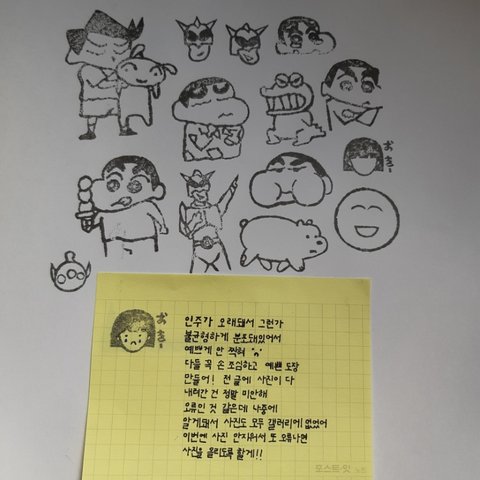 인주가 오래돼서 그런가
불균형하게 분포돼있어서
예쁘게 안 찍혀 ㅠㅠ
다들 꼭 손 조심하고 예쁜 도장
만들어! 전 글에 사진이 다
내려간 건 정말 미안해
오류인 것 같은데 나중에
알게돼서 사진도 모두 갤러리에 없었어
이번엔 사진 안지워서 또 오류나면
사진을 올리도록 할게!!
포스트-잇